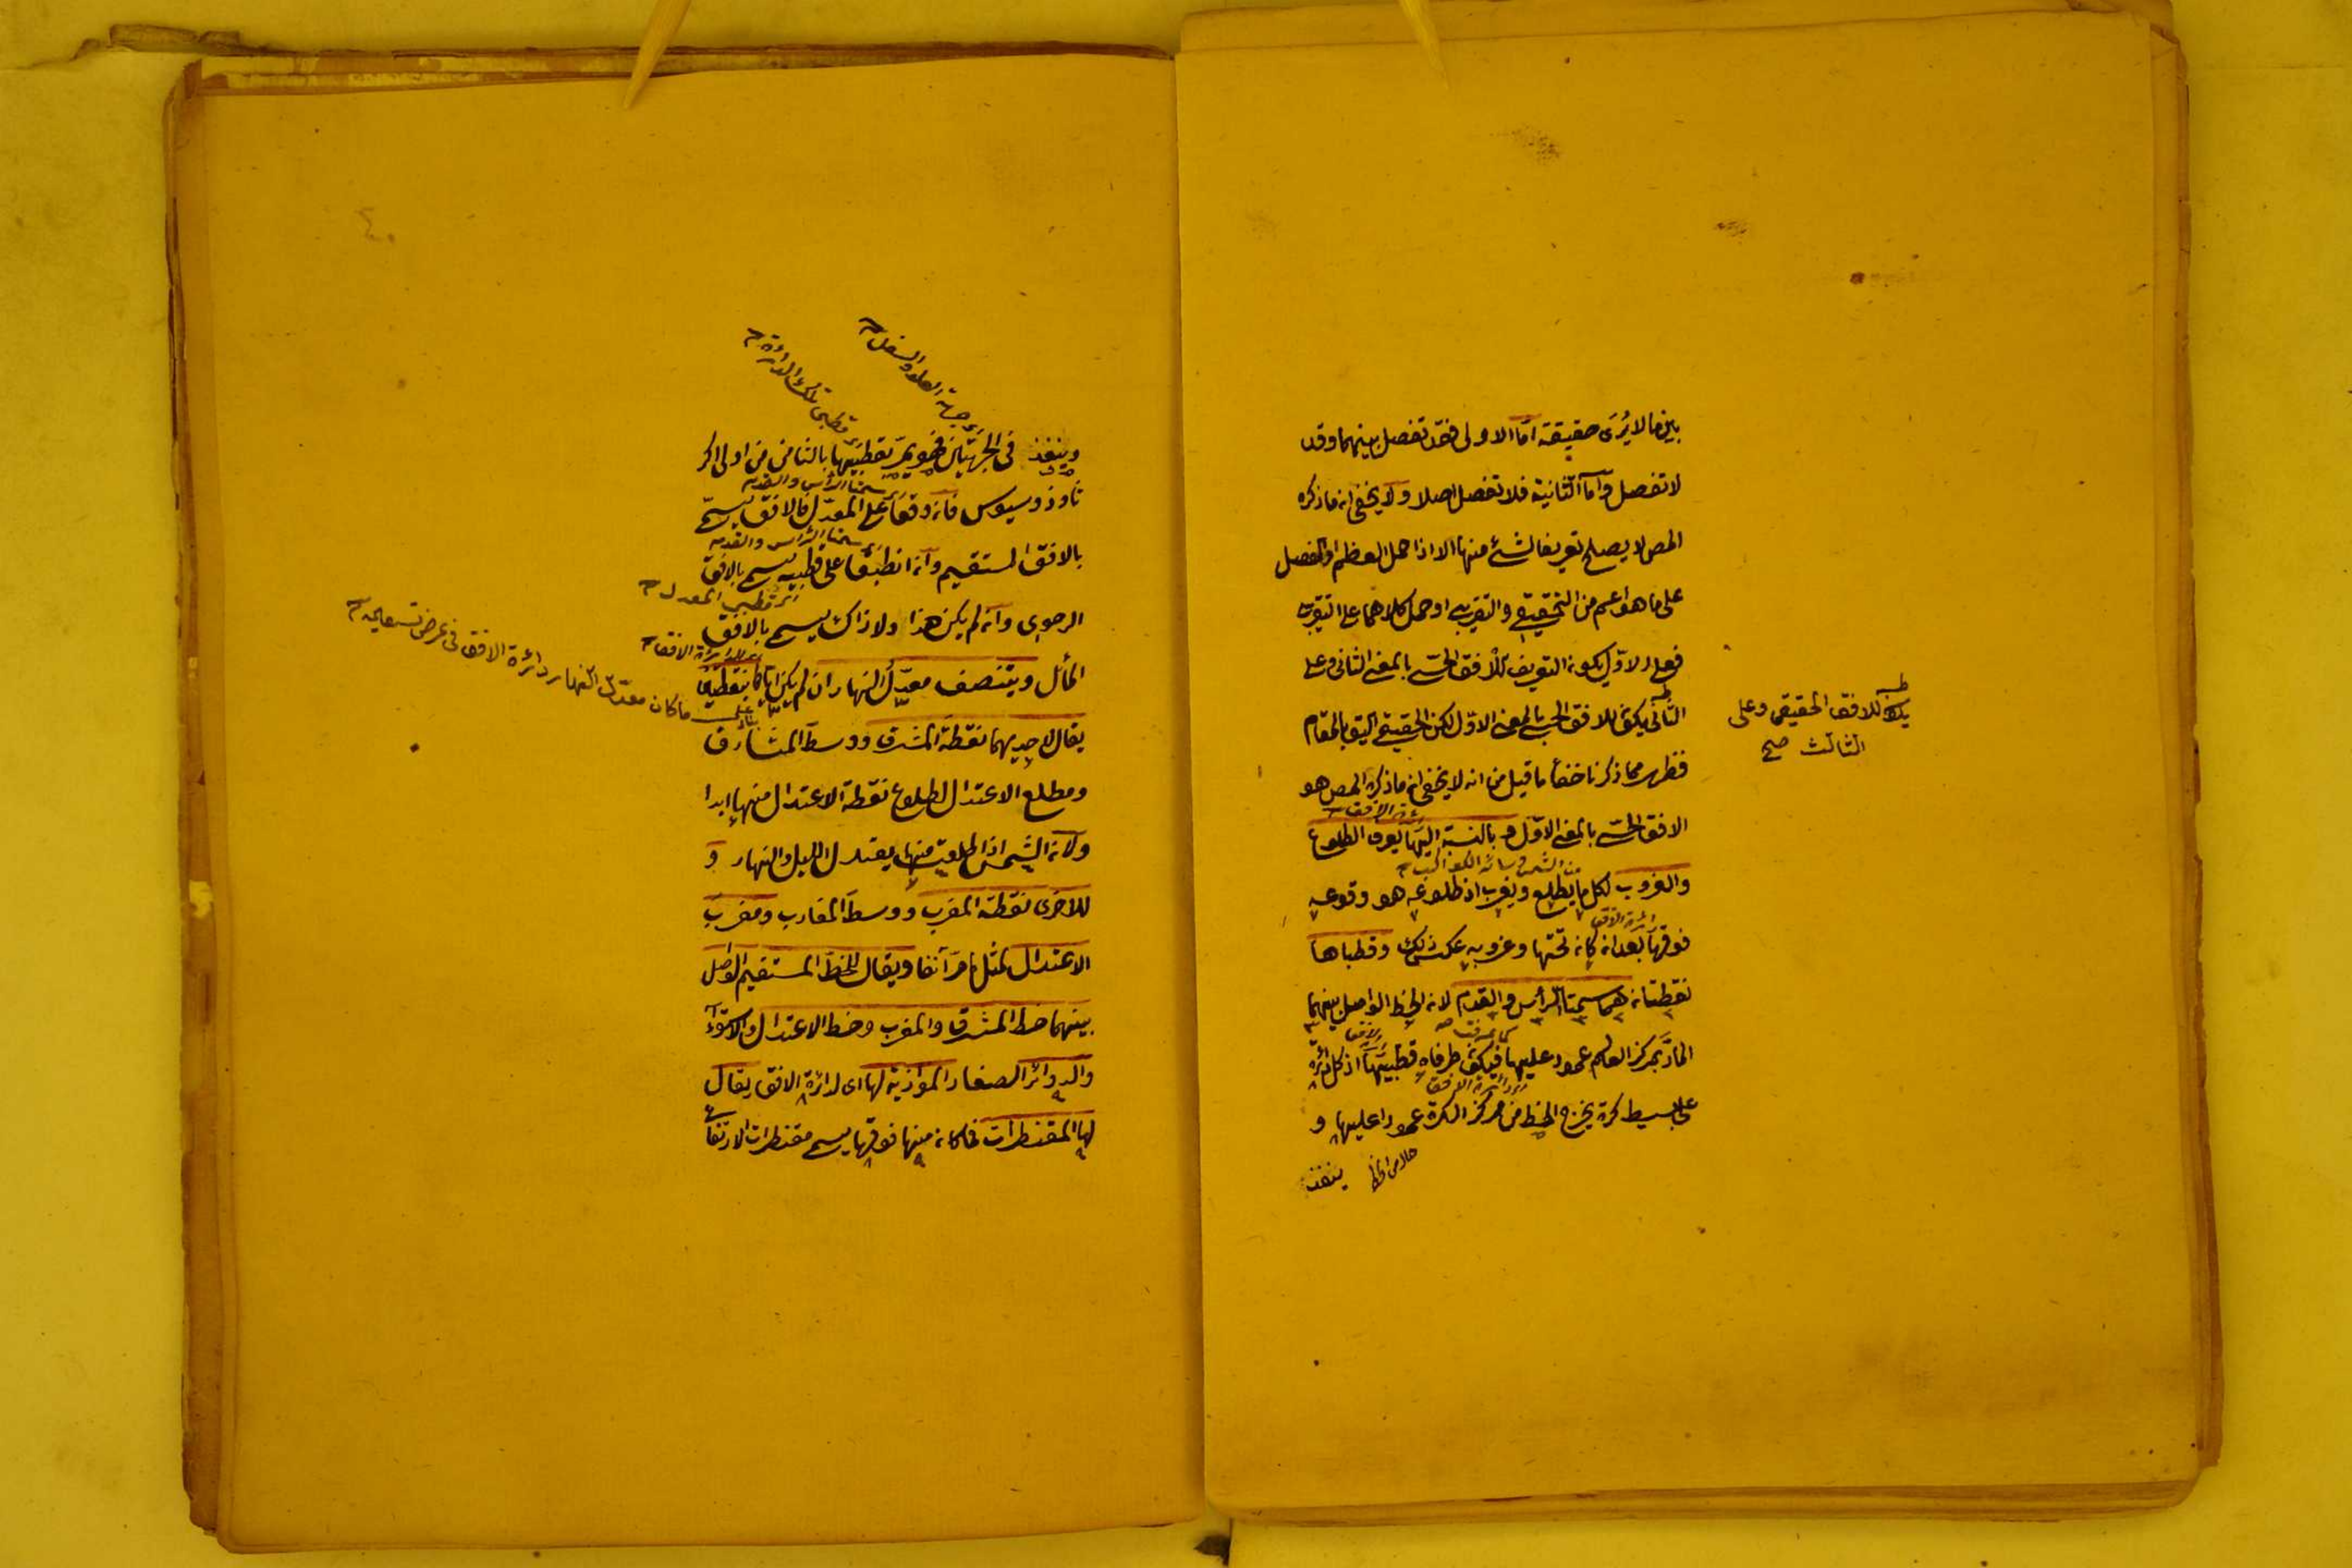 بين ما لا يرى حقيقة اما الاولى فقد تفصل بينهما وقد
لا تفصل واما الثانية فلا تفصل اصلا ولا يخفى ان ما ذكره
المص لا يصلح تعريفا لشئ منها الا اذا حمل العظم او الفصل
على ما هو اعم من التحقيقى والتقريبى او حمل كلاهما على التقريب
فعلى الاول يكون التعريف للافق الحسى بالمعنى الثانى وعلى
الثانى يكون للافق الحسى بالمعنى الاول لكن الحقيقى اليق بالمقام
يكون للافق الحقيقى وعلى
الثالث صح
فظهر مما ذكرنا خفأ ما قيل من انه لا يخفى ان ما ذكره المص هو
الافق الحسى بالمعنى الاول وبالنسبة اليها يعرف الطلوع
والغروب لكل ما يطلع ويغرب اذ طلوعه هو وقوعه
فوقها بعد ان كان تحتها وغروبه عكس ذلك وقطباها
نقطتان هما سمتا الرأس والقدم لان الخط الواصل بينهما
المار بمركز العالم عمود عليها فيكون طرفاه قطبيها اذ كل دائرة
على بسيط كرة يخرج الخط من مركز الكرة عمودا عليها و
ينفذ
اى جهة العلو والسفل
اى قطبى تلك الدائرة
وينفذ فى الجهتين فهو يمر بقطبيها بالثامن من اولى اكر
ثاوذوسيوس فان وقعا على المعدل فالافق يسمى
اى سمتا الرأس والقدم
بالافق المستقيم وان انطبقا على قطبيه يسمى بالافق
اى سمتا الرأس والقدم
اى قطبى المعدل
الرحوى وان لم يكن هذا ولا ذاك يسمى بالافق
المائل وينتصف معدل النهار ان لم يكن اياها بنقطتين
ما كان معدل النهار دائرة الافق فى عرض تسعين
يقال لاحديهما نقطة المشرق ووسط المشارق
ومطلع الاعتدال لطلوع نقطة الاعتدال منها ابدا
ولان الشمس اذا طلعت منها يعتدل الليل والنهار و
للاخرى نقطة المغرب ووسط المغارب ومغرب
الاعتدال لمثل ما مر آنفا ويقال للخط المستقيم الواصل
بينهما خط المشرق والمغرب وخط الاعتدال والاستوآء
والدوائر الصغار الموازية لها اى لدائرة الافق يقال
لها المقنطرات فما كان منها فوقها يسمى مقنطرات الارتفاع